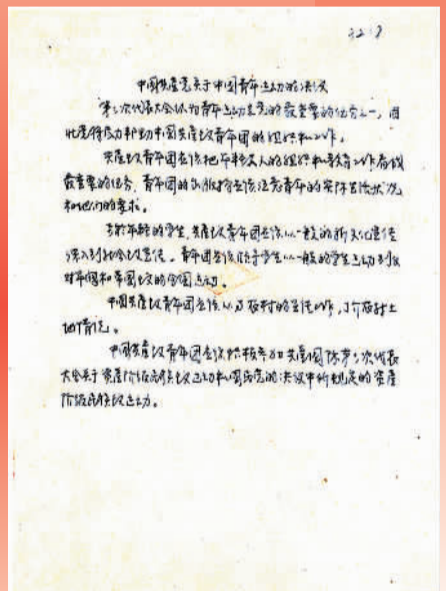 中国共产党关于中国青年运动的决议
第三次代表大会认为青年运动是党的最重要的任务之一，因
此党得尽力帮助中国共产主义青年团的组织和工作。
共产主义青年团应该把年轻工人的组织和教育工作看成
最重要的任务，青年团的出版物应该注意青年的实际生活状况
和他们的要求。
年龄的学生，共产主义青年团应该以一般的新文化宣传
深入到社会主义宣传。青年团应该领导学生从一般的学生运动到反
对军阀和帝国主义的全国运动。
中国共产主义青年团应该从事农村的宣传工作，了解农村土
地情况。
中国共产主义青年团应该积极参加共产国际第三次代表
大会关于资产阶级民族主义运动和国民党的决议中所规定的资产
阶级民族主义运动。